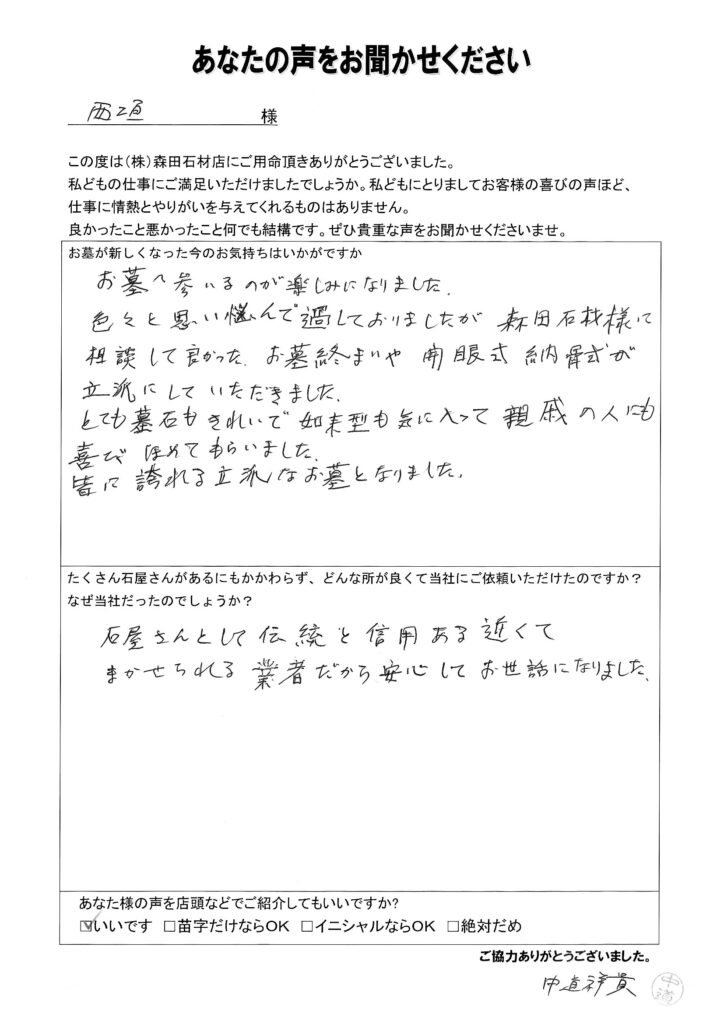 あなたの声をお聞かせください
様
この度は(株)森田石材店にご用命頂きありがとうございました。
私どもの仕事にご満足いただけましたでしょうか。私どもにとりましてお客様の喜びの声ほど、
仕事に情熱とやりがいを与えてくれるものはありません。
良かったこと悪かったこと何でも結構です。ぜひ貴重な声をお聞かせくださいませ。
お墓が新しくなった今のお気持ちはいかがですか
お墓へ参いるのが楽しみになりました.
色々と思い悩んで過しておりましたが 森田石材様に
相談して良かった. お墓終まいや 開眼式 納骨式が
立派にしていただきました.
とても墓石もきれいで 如来型も気に入って 親戚の人にも
喜び ほめてもらいました.
皆に 誇れる立派なお墓となりました.
たくさん石屋さんがあるにもかかわらず、どんな所が良くて当社にご依頼いただけたのですか?
なぜ当社だったのでしょうか?
石屋さんとして 伝統と 信用ある 近くて
まかせられる 業者だから 安心して お世話になりました.
あなた様の声を店頭などでご紹介してもいいですか?
☑いいです □苗字だけならOK □イニシャルならOK □絶対だめ
ご協力ありがとうございました。
中道祥貴 中道